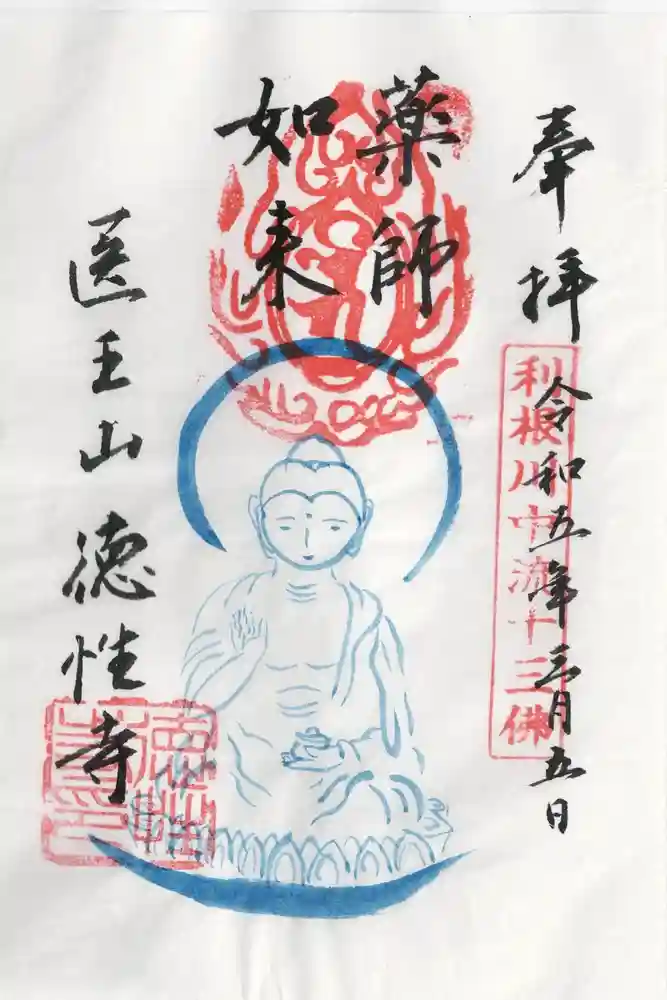 奉拝
令和五年三月五日
利根川中流十三佛
薬師
如来
医王山 徳性寺